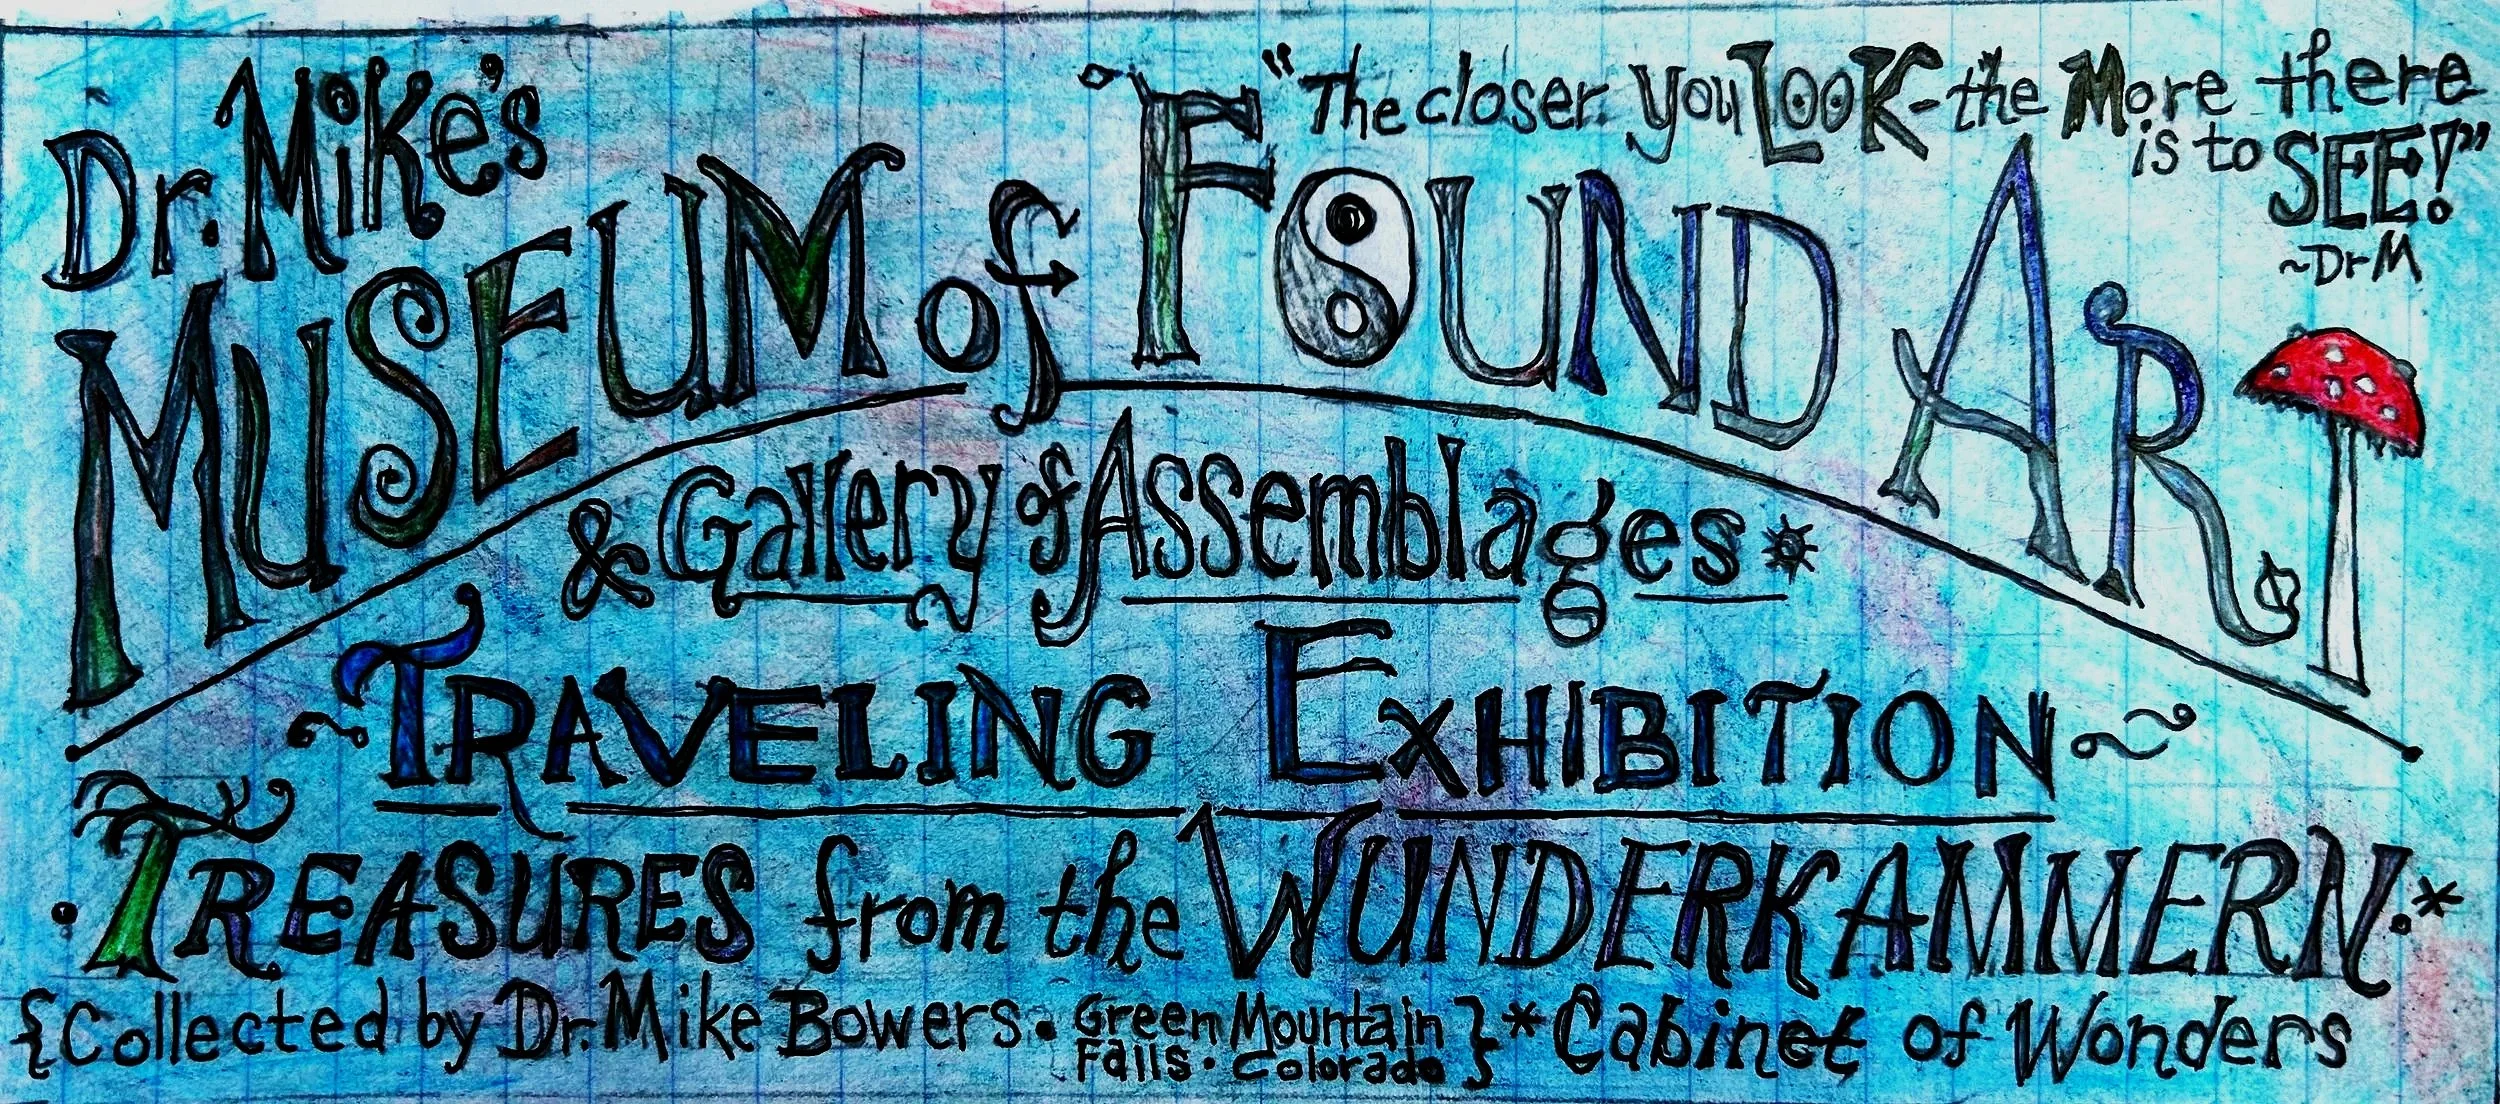 Dr. Mike's
"The closer you LOOK - the More there
is to SEE!"
~Dr M
MUSEUM of FOUND ART
& Gallery of Assemblages*
~TRAVELING EXHIBITION~
TREASURES from the WUNDERKAMMERN.*
{Collected by Dr. Mike Bowers • Green Mountain
Falls • Colorado} *Cabinet of Wonders